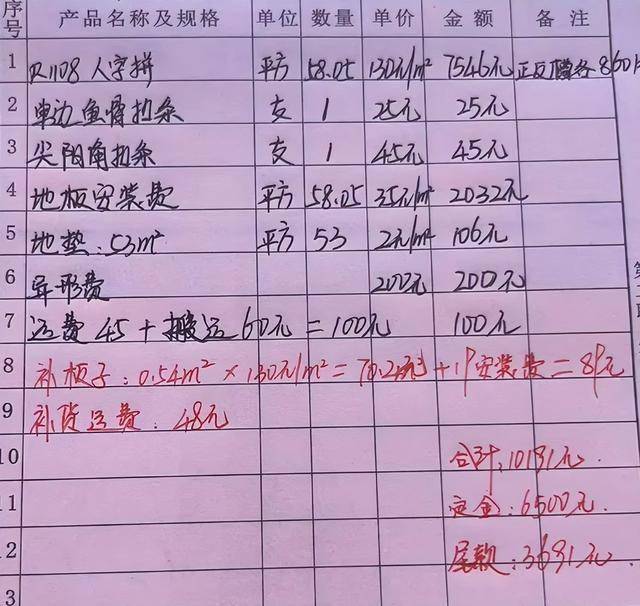 序号 产品名称及规格 单位 数量 单价 金额 备注
1 R1108 人字拼 平方 58.05 130元/m² 7546元 正反槽各860片
2 单边鱼骨扣条 支 1 25元 25元
3 尖阳角扣条 支 1 45元 45元
4 地板安装费 平方 58.05 35元/m² 2032元
5 地垫:53m² 平方 53 2元/m² 106元
6 异形费 200元 200元
7 运费 45 + 搬运 60元 = 100元 100元
8 补板子:0.54m² × 130元/m² = 70.2元 + 19安装费 = 89元
9 补货运费:48元
10 合计:10191元.
11 定金:6500元.
12 尾款:3691元
3